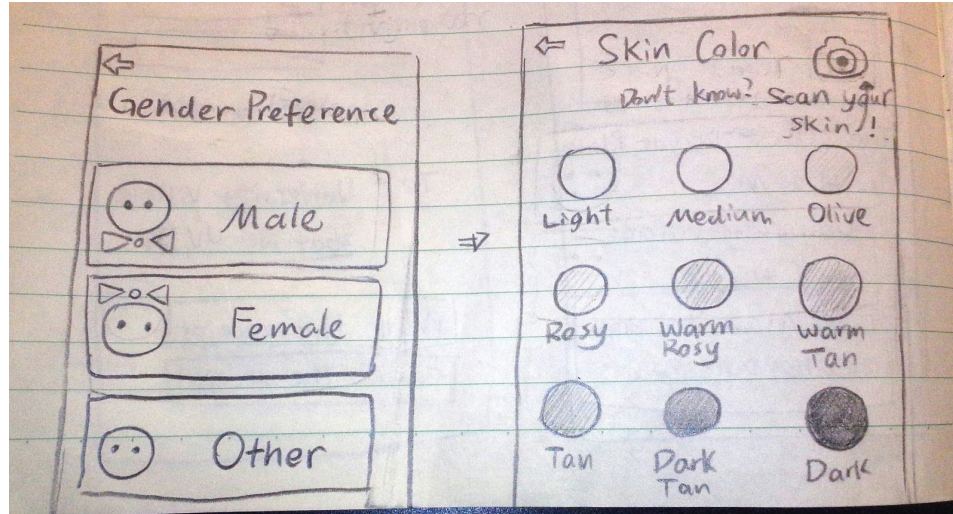 Gender Preference
Male
Female
Other
Skin Color
Don't know? Scan your
skin!
Light Medium Olive
Rosy Warm Rosy Warm Tan
Tan Dark Tan Dark